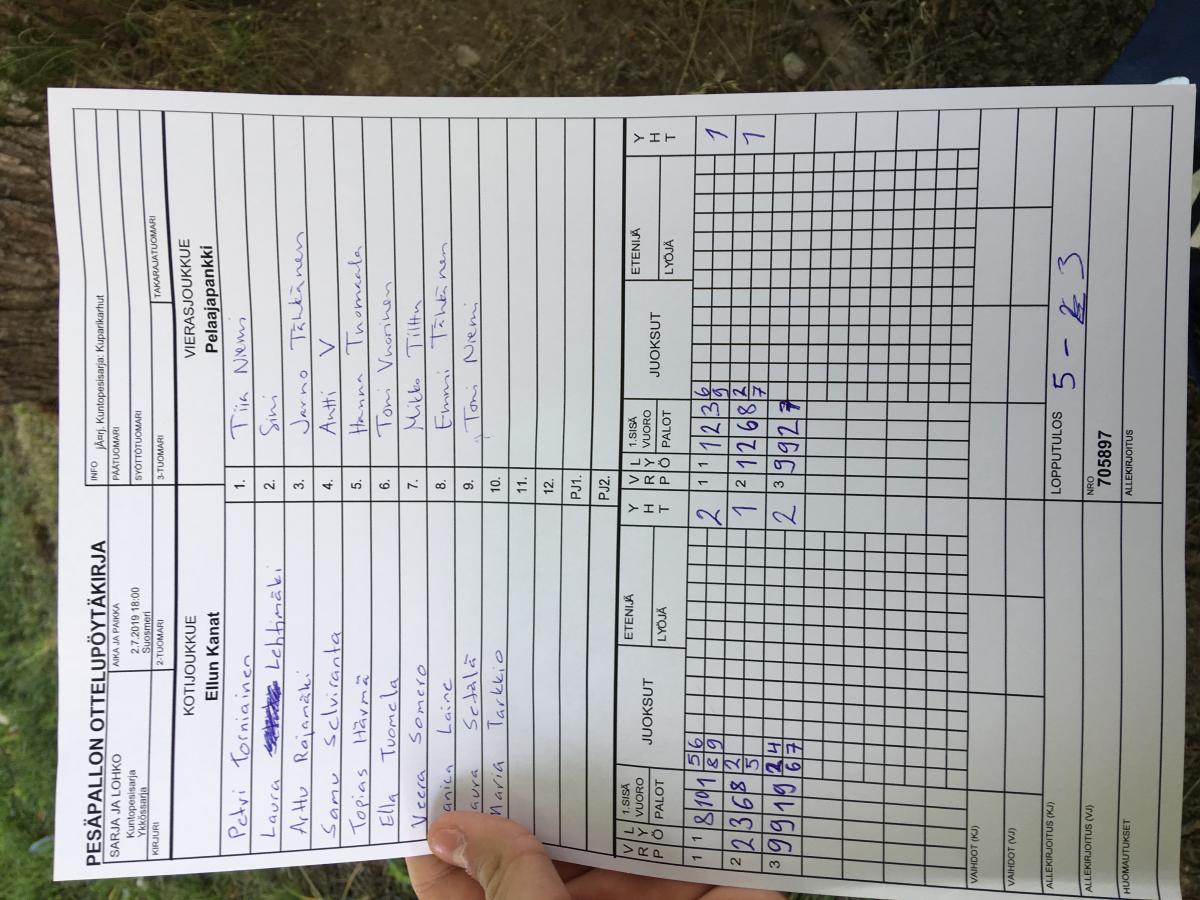 PESÄPALLON OTTELUPÖYTÄKIRJA
SARJA JA LOHKO
Kuntopesisarja
Ykkössarja
AIKA JA PAIKKA
2.7.2019 18:00
Suosmeri
INFO jÃ¤rj. Kuntopesisarja: Kuparikarhut
PÄÄTUOMARI
SYÖTTÖTUOMARI
KIRJURI 2-TUOMARI 3-TUOMARI TAKARAJATUOMARI
KOTIJOUKKUE VIERASJOUKKUE
Ellun Kanat Pelaajapankki
Petri Torniainen 1. Tiia Niemi
Laura Lehtimäki 2. Sini
Arttu Rajamäki 3. Jarno Tähkänen
Samu Selviranta 4. Antti V
Topias Hävmä 5. Hanna Tuomaala
Ella Tuomela 6. Toni Vuorinen
Veera Somero 7. Mikko Tilttu
Laine 8. Emmi Tähkänen
Setälä 9. Toni Niemi
Maria Tarkkio 10.
11.
12.
PJ1.
PJ2.
V L 1.SISÄ JUOKSUT ETENIJÄ Y V L 1.SISÄ JUOKSUT ETENIJÄ Y
R Y VUORO H R Y VUORO H
P Ö PALOT LYÖJÄ T P Ö PALOT LYÖJÄ T
1 1 8 10 1 5 6 2 1 1 1 2 3 6 1
8 9 9
2 2 3 6 8 2 1 2 1 2 6 8 2 1
5 7
3 9 9 1 9 2 4 2 3 9 9 2 7
6 7
VAIHDOT (KJ)
VAIHDOT (VJ)
ALLEKIRJOITUS (KJ) LOPPUTULOS 5 - 3
ALLEKIRJOITUS (VJ) NRO
705897
HUOMAUTUKSET ALLEKIRJOITUS